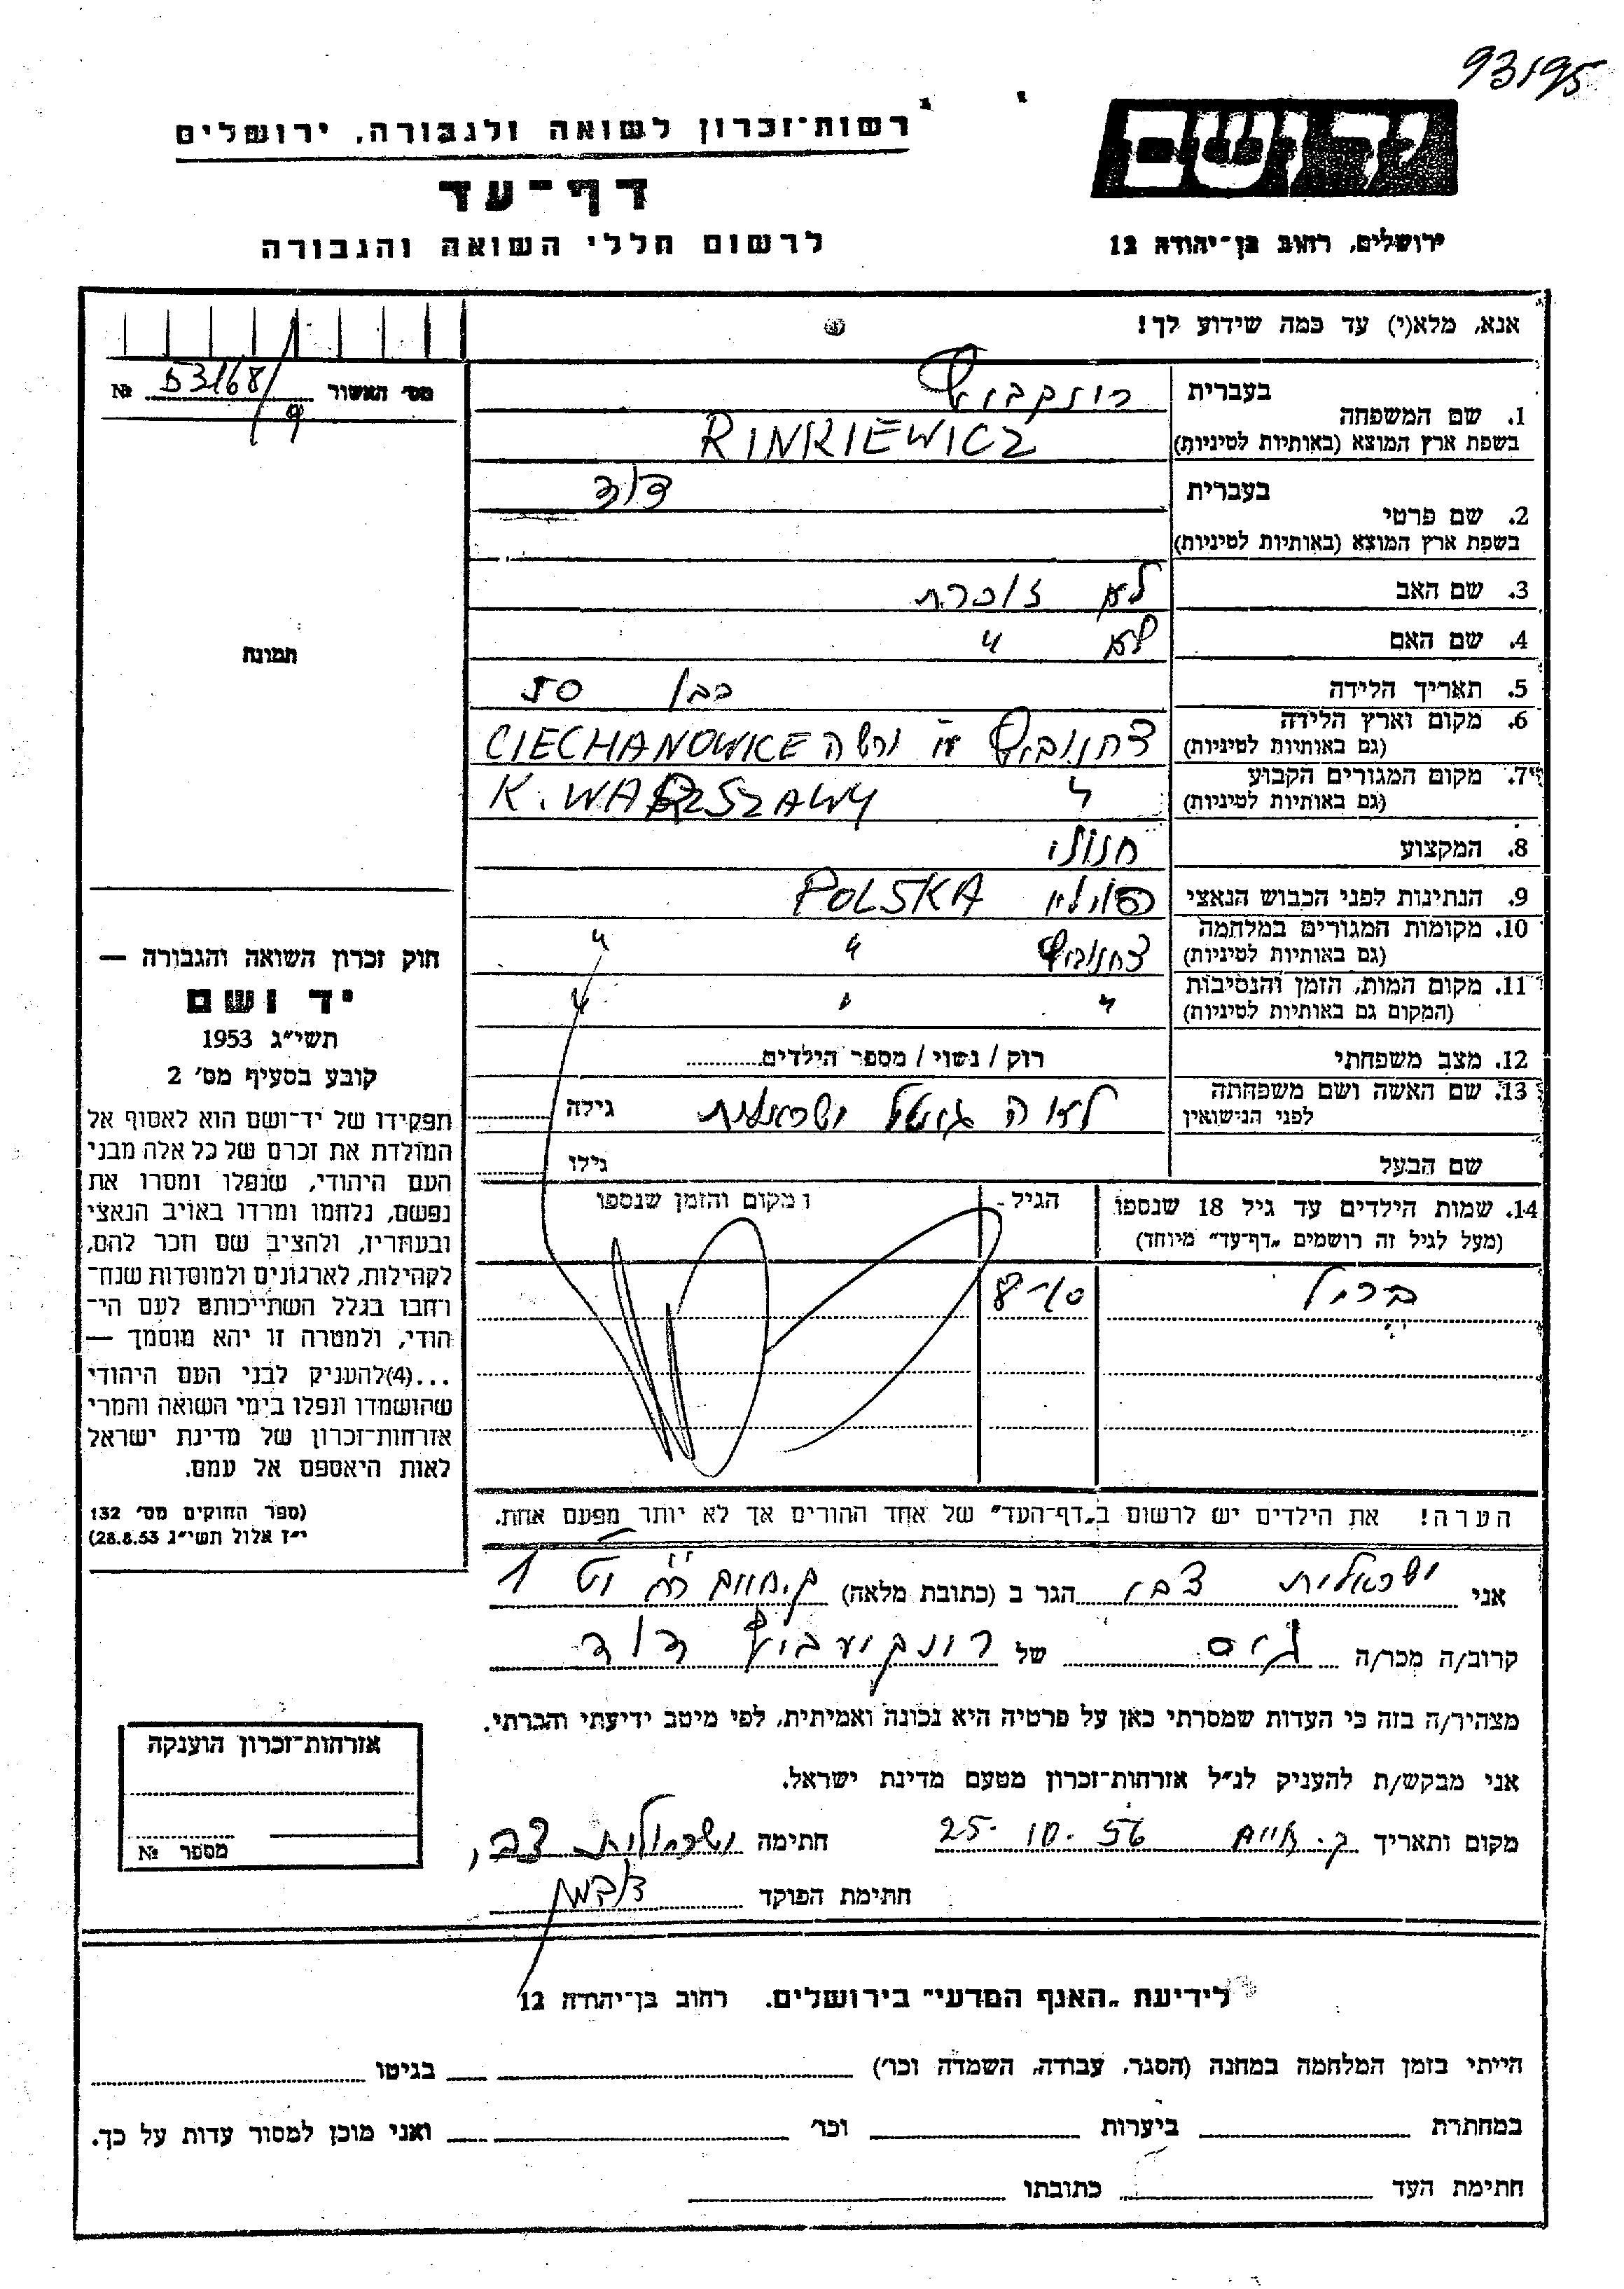 93195
רשות־זכרון לשואה ולגבורה, ירושלים
יד ושם
דף־עד
לרשום חללי השואה והגבורה
ירושלים, רחוב בן־יהודה 12
אנא, מלא(י) עד כמה שידוע לך!
מס׳ האשור 53168/9 №
תמונה
1. שם המשפחה
בעברית
בשפת ארץ המוצא (באותיות לטיניות) RINKIEWICZ
2. שם פרטי
בעברית דוד
בשפת ארץ המוצא (באותיות לטיניות)
3. שם האב לא זוכרת
4. שם האם לא "
5. תאריך הלידה כבן 50
6. מקום וארץ הלידה צחנוביץ ע"י ורשה CIECHANOWICE
(גם באותיות לטיניות)
7. מקום המגורים הקבוע " K. WARSZAWY
(גם באותיות לטיניות)
8. המקצוע חנוני
9. הנתינות לפני הכבוש הנאצי פולין POLSKA
10. מקומות המגורים במלחמה צחנוביץ " "
(גם באותיות לטיניות)
11. מקום המות, הזמן והנסיבות " " "
(המקום גם באותיות לטיניות)
12. מצב משפחתי רוק / נשוי / מספר הילדים
13. שם האשה ושם משפחתה גילה
לפני הנישואין
שם הבעל גילו
14. שמות הילדים עד גיל 18 שנספו הגיל ומקום והזמן שנספו
(מעל לגיל זה רושמים „דף־עד" מיוחד)
8-10
הערה! את הילדים יש לרשום ב„דף־העד" של אחד ההורים אך לא יותר מפעם אחת.
חוק זכרון השואה והגבורה —
יד ושם
תשי״ג 1953
קובע בסעיף מס׳ 2
תפקידו של יד־ושם הוא לאסוף אל
המולדת את זכרם של כל אלה מבני
העם היהודי, שנפלו ומסרו את
נפשם, נלחמו ומרדו באויב הנאצי
ובעוזריו, ולהציב שם וזכר להם,
לקהילות, לארגונים ולמוסדות שנח־
רחבו בגלל השתייכותם לעם הי־
הודי, ולמטרה זו יהא מוסמך —
...(4)להעניק לבני העם היהודי
שהושמדו ונפלו בימי השואה והמרי
אזרחות־זכרון של מדינת ישראל
לאות היאספם אל עמם.
(ספר החוקים מס׳ 132
י״ז אלול תשי״ג 28.8.53)
אני ישראלית צבי הגר ב (כתובת מלאה)
קרוב/ה מכר/ה גיס של רינקיעביץ דוד
מצהיר/ה בזה כי העדות שמסרתי כאן על פרטיה היא נכונה ואמיתית, לפי מיטב ידיעתי והכרתי.
אני מבקש/ת להעניק לנ״ל אזרחות־זכרון מטעם מדינת ישראל.
מקום ותאריך ק. חיים 25.10.56 חתימה ישראלית צבי
חתימת הפוקד
אזרחות־זכרון הוענקה
מספר №
לידיעת „האגף המדעי" בירושלים. רחוב בן־יהודה 12
הייתי בזמן המלחמה במחנה (הסגר, עבודה, השמדה וכו׳) בגיטו
במחתרת ביערות וכו׳ ואני מוכן למסור עדות על כך.
חתימת העד כתובתו